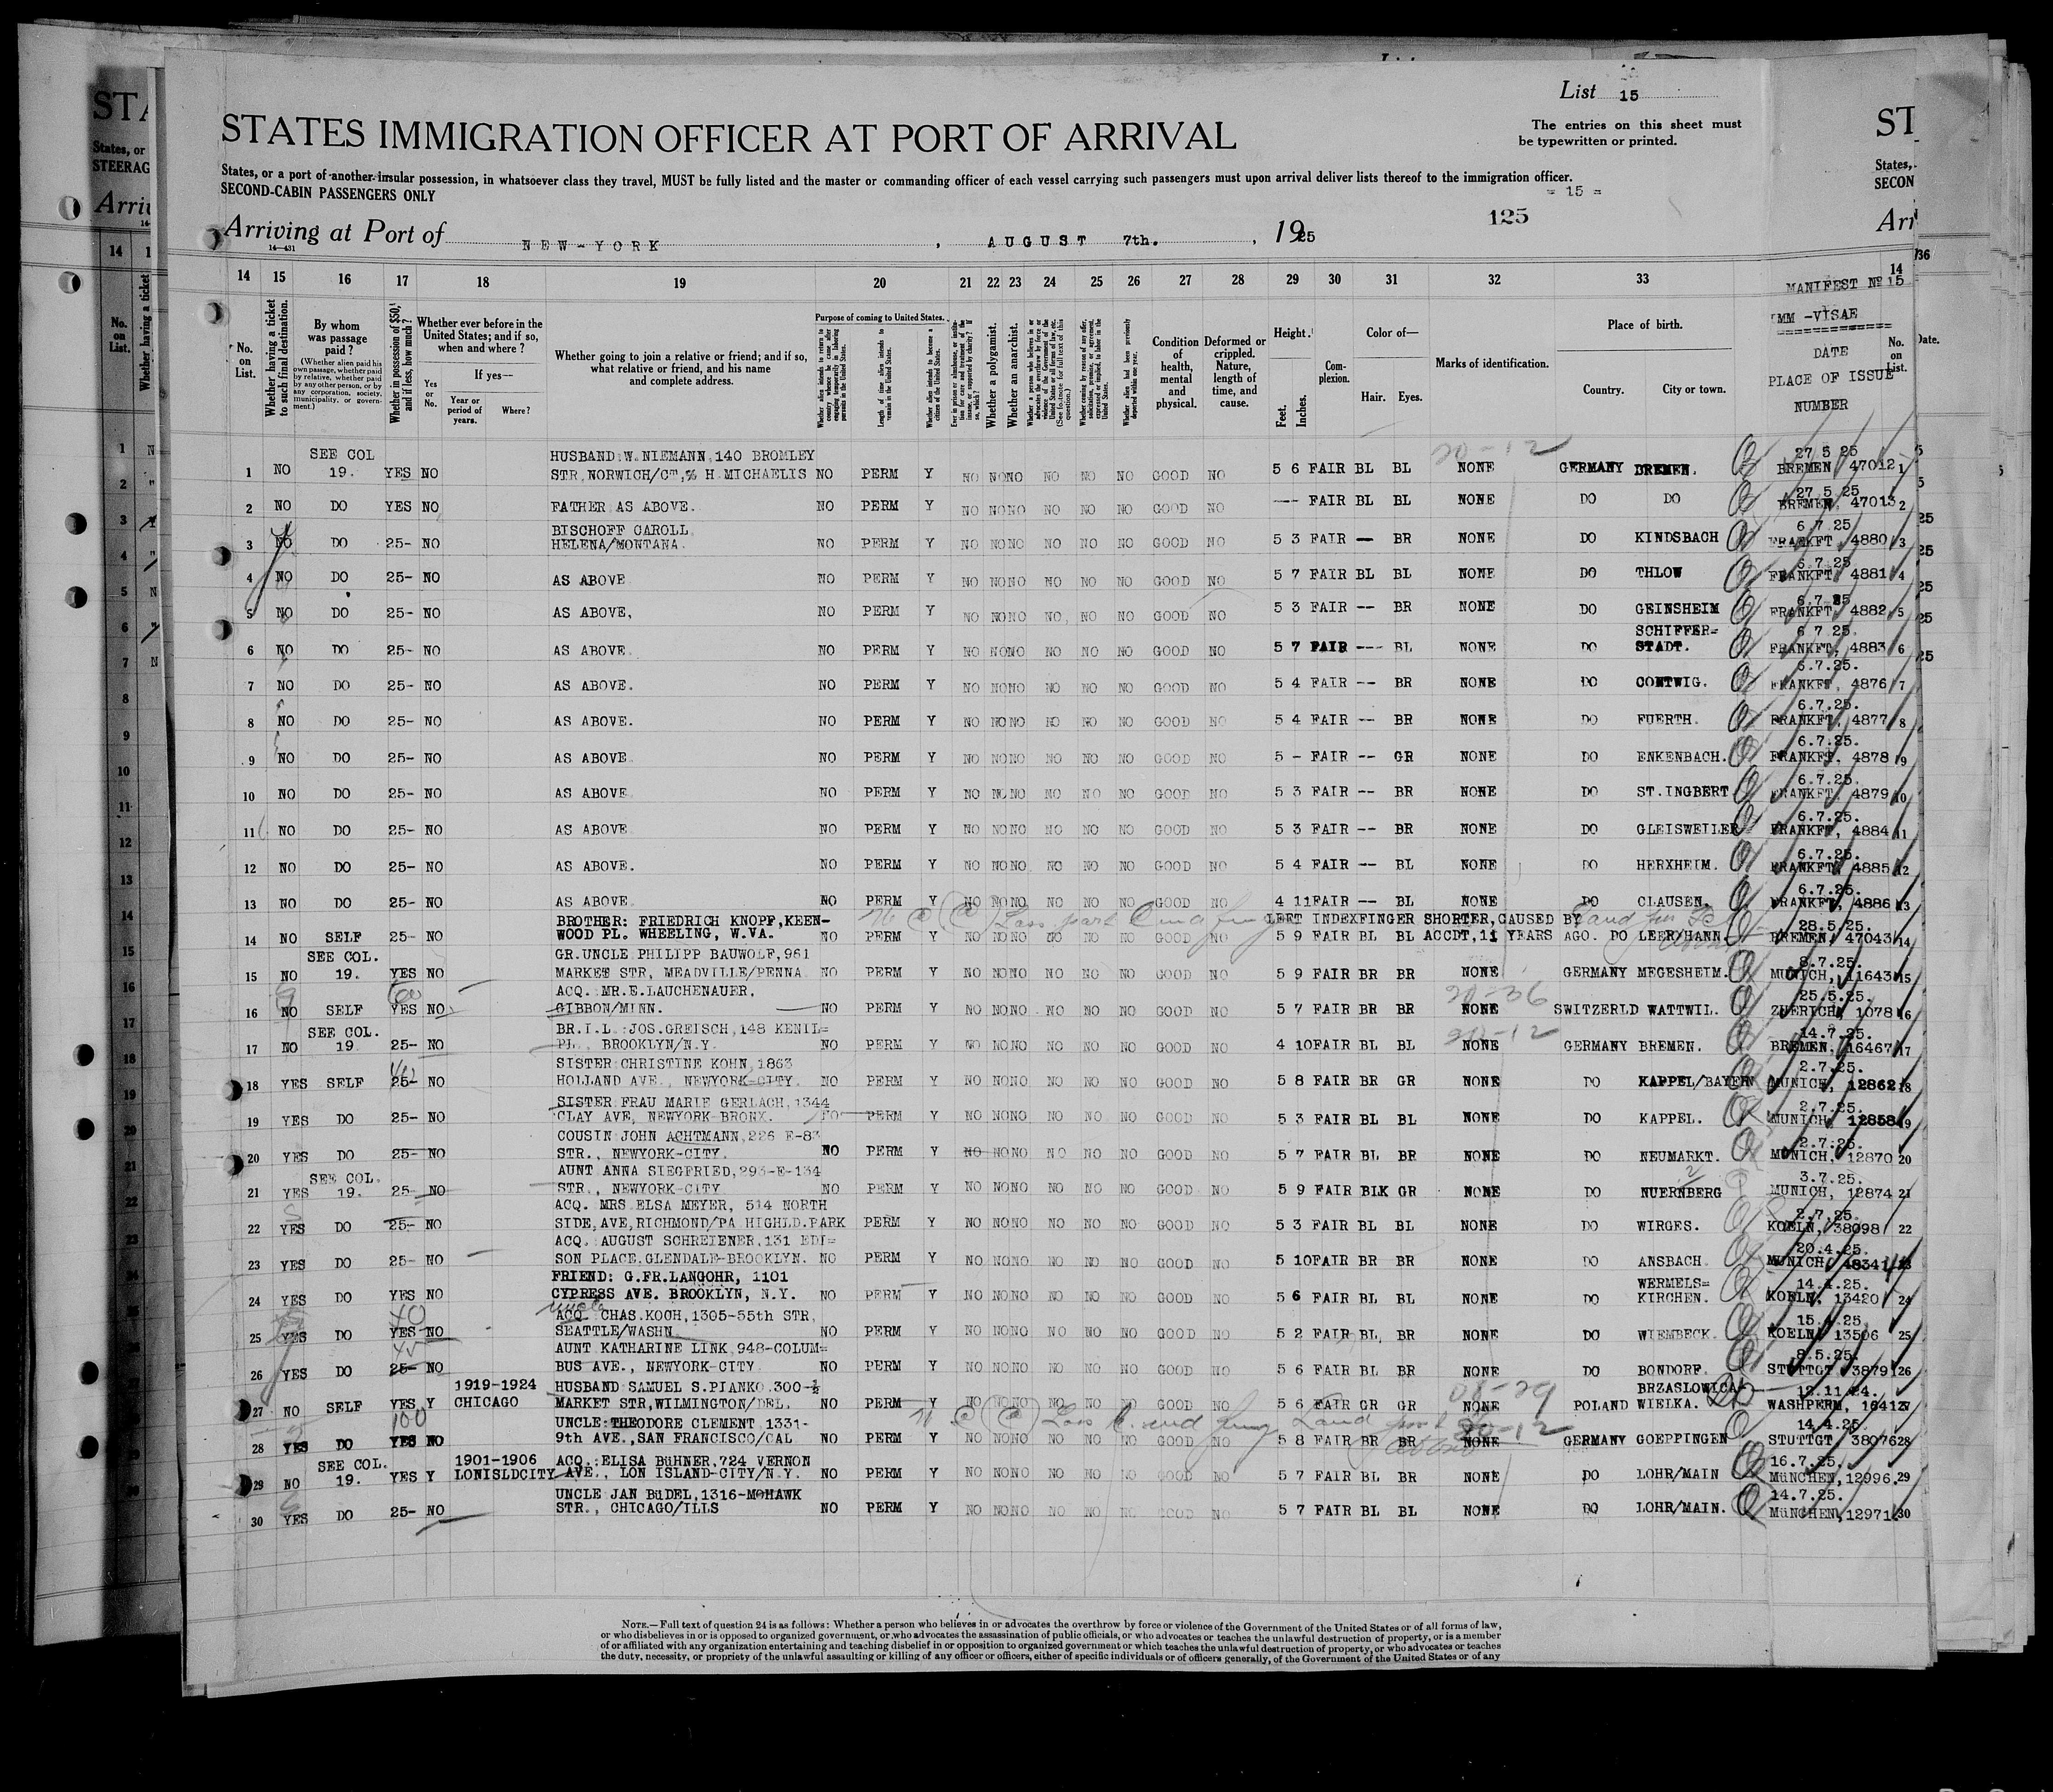 List 15
STATES IMMIGRATION OFFICER AT PORT OF ARRIVAL
The entries on this sheet must
be typewritten or printed.
States, or a port of another insular possession, in whatsoever class they travel, MUST be fully listed and the master or commanding officer of each vessel carrying such passengers must upon arrival deliver lists thereof to the immigration officer.
SECOND-CABIN PASSENGERS ONLY
= 15 =
125
Arriving at Port of NEW-YORK, AUGUST 7th., 1925
14—431
14 15 16 17 18 19 20 21 22 23 24 25 26 27 28 29 30 31 32 33
MANIFEST Nº 15
IMM -VISAE
DATE
PLACE OF ISSUE
NUMBER
No. on List.
Whether having a ticket to such final destination.
By whom was passage paid?
(Whether alien paid his own passage, whether paid by relative, whether paid by any other person, or by any corporation, society, municipality, or government.)
Whether in possession of $50, and if less, how much?
Whether ever before in the United States; and if so, when and where?
If yes—
Yes or No.
Year or period of years.
Where?
Whether going to join a relative or friend; and if so, what relative or friend, and his name and complete address.
Purpose of coming to United States.
Whether a polygamist.
Whether an anarchist.
Condition of health, mental and physical.
Deformed or crippled. Nature, length of time, and cause.
Height.
Feet. Inches.
Complexion.
Color of—
Hair. Eyes.
Marks of identification.
Place of birth.
Country. City or town.
SEE COL HUSBAND W. NIEMANN, 140 BROMLEY 20-12 27 5 25
1 NO 19. YES NO STR. NORWICH/CT, % H MICHAELIS NO PERM Y NO NO NO NO NO NO GOOD NO 5 6 FAIR BL BL NONE GERMANY BREMEN. BREMEN 47012 1
27.5.25
2 NO DO YES NO FATHER AS ABOVE. NO PERM Y NO NO NO NO NO NO GOOD NO --- FAIR BL BL NONE DO DO BREMEN, 47013 2
BISCHOFF CAROLL 6.7.25
3 NO DO 25- NO HELENA/MONTANA. NO PERM Y NO NO NO NO NO NO GOOD NO 5 3 FAIR — BR NONE DO KINDSBACH FRANKFT 4880 3
6.7.25
4 NO DO 25- NO AS ABOVE NO PERM Y NO NO NO NO NO NO GOOD NO 5 7 FAIR BL BL NONE DO THLOW FRANKFT 4881 4
6.7.25
5 NO DO 25- NO AS ABOVE, NO PERM Y NO NO NO NO NO NO GOOD NO 5 3 FAIR -- BR NONE DO GEINSHEIM FRANKFT, 4882 5
SCHIFFER= 6 7 25.
6 NO DO 25- NO AS ABOVE. NO PERM Y NO NO NO NO NO NO GOOD NO 5 7 FAIR --- BL NONE DO STADT. FRANKFT, 4883 6
6.7.25.
7 NO DO 25- NO AS ABOVE. NO PERM Y NO NO NO NO NO NO GOOD NO 5 4 FAIR -- BR NONE DO CONTWIG. FRANKFT, 4876 7
6.7.25.
8 NO DO 25- NO AS ABOVE. NO PERM Y NO NO NO NO NO NO GOOD NO 5 4 FAIR -- BR NONE DO FUERTH. FRANKFT, 4877 8
6.7.25.
9 NO DO 25- NO AS ABOVE. NO PERM Y NO NO NO NO NO NO GOOD NO 5 - FAIR -- GR NONE DO ENKENBACH. FRANKFT, 4878 9
6.7.25.
10 NO DO 25- NO AS ABOVE NO PERM Y NO NO NO NO NO NO GOOD NO 5 3 FAIR -- BR NONE DO ST.INGBERT FRANKFT, 4879 10
6.7.25.
11 NO DO 25- NO AS ABOVE NO PERM Y NO NO NO NO NO NO GOOD NO 5 3 FAIR -- BR NONE DO GLEISWEILER FRANKFT, 4884 11
6.7.25.
12 NO DO 25- NO AS ABOVE. NO PERM Y NO NO NO NO NO NO GOOD NO 5 4 FAIR -- BL NONE DO HERXHEIM. FRANKFT, 4885 12
6.7.25.
13 NO DO 25- NO AS ABOVE. NO PERM Y NO NO NO NO NO NO GOOD NO 4 11 FAIR -- BL NONE DO CLAUSEN. FRANKFT, 4886 13
BROTHER: FRIEDRICH KNOPF, KEEN- LEFT INDEXFINGER SHORTER, CAUSED BY 28.5.25.
14 NO SELF 25- NO WOOD PL. WHEELING, W.VA. NO PERM Y NO NO NO NO NO NO GOOD NO 5 9 FAIR BL BL ACCDT, 11 YEARS AGO. DO LEER/HANN. BREMEN, 47043 14
SEE COL. GR.UNCLE PHILIPP BAUWOLF, 961 8.7.25.
15 NO 19. YES NO MARKET STR, MEADVILLE/PENNA. NO PERM Y NO NO NO NO NO NO GOOD NO 5 9 FAIR BR BR NONE GERMANY MEGESHEIM. MUNICH, 11643 15
60 ACQ. MR.E.LAUCHENAUER, 20-36 25.5.25.
16 NO SELF YES NO GIBBON/MINN. NO PERM Y NO NO NO NO NO NO GOOD NO 5 7 FAIR BR BR NONE SWITZERLD WATTWIL. ZUERICH, 1078 16
SEE COL. BR.I.L. JOS.GREISCH, 148 KENIL= 20-12 14.7.25.
17 NO 19 25- NO PL. BROOKLYN/N.Y. NO PERM Y NO NO NO NO NO NO GOOD NO 4 10 FAIR BL BL NONE GERMANY BREMEN. BREMEN, 16467 17
SISTER CHRISTINE KOHN, 1863 2.7.25.
18 YES SELF 25- NO HOLLAND AVE., NEWYORK-CITY. NO PERM Y NO NO NO NO NO NO GOOD NO 5 8 FAIR BR GR NONE DO KAPPEL/BAYERN MUNICH, 12862 18
SISTER FRAU MARIE GERLACH, 1344 2.7.25.
19 YES DO 25- NO CLAY AVE, NEWYORK-BRONX. NO PERM Y NO NO NO NO NO NO GOOD NO 5 3 FAIR BL BL NONE DO KAPPEL. MUNICH, 12858 19
COUSIN JOHN ACHTMANN, 226 E-83 2.7.25.
20 YES DO 25- NO STR., NEWYORK-CITY. NO PERM Y NO NO NO NO NO NO GOOD NO 5 7 FAIR BL BR NONE DO NEUMARKT. MUNICH, 12870 20
SEE COL. AUNT ANNA SIEGFRIED, 293-E-134 3.7.25.
21 YES 19. 25- NO STR., NEWYORK-CITY NO PERM Y NO NO NO NO NO NO GOOD NO 5 9 FAIR BLK GR NONE DO NUERNBERG MUNICH, 12874 21
ACQ. MRS ELSA MEYER, 514 NORTH 2.7.25.
22 YES DO 25- NO SIDE, AVE, RICHMOND/PA HIGHLD.PARK PERM Y NO NO NO NO NO NO GOOD NO 5 3 FAIR BL BL NONE DO WIRGES. KOELN, 38098 22
ACQ. AUGUST SCHREIENER, 131 EDI= 20.4.25.
23 YES DO 25- NO SON PLACE, GLENDALE-BROOKLYN. NO PERM Y NO NO NO NO NO NO GOOD NO 5 10 FAIR BR BR NONE DO ANSBACH. MUNICH, 48341 23
FRIEND: G.FR.LANGOHR, 1101 WERMELS= 14.4.25.
24 YES DO YES NO CYPRESS AVE. BROOKLYN, N.Y. NO PERM Y NO NO NO NO NO NO GOOD NO 5 6 FAIR BL BL NONE DO KIRCHEN. KOELN, 13420 24
40 uncle ACQ. CHAS.KOCH, 1305-55th STR, 15.4.25,
25 YES DO YES NO SEATTLE/WASHN. NO PERM Y NO NO NO NO NO NO GOOD NO 5 2 FAIR BL, BR NONE DO WIEMBECK. KOELN, 13506 25
45 AUNT KATHARINE LINK, 948-COLUM= 8.5.25.
26 YES DO 25- NO BUS AVE., NEWYORK-CITY NO PERM Y NO NO NO NO NO NO GOOD NO 5 6 FAIR BL BR NONE DO BONDORF. STUTTGT 3879 26
1919-1924 HUSBAND SAMUEL S.PIANKO.300-½ 08-29 BRZASLOWICA- 12.11.24.
27 NO SELF YES Y CHICAGO MARKET STR, WILMINGTON/DEL. NO PERM Y NO NO NO NO NO NO GOOD NO 5 6 FAIR GR GR NONE POLAND WIELKA. WASHPERM, 16412 27
100 UNCLE: THEODORE CLEMENT 1331- 20-12 14.4.25.
28 YES DO YES NO 9th AVE., SAN FRANCISCO/CAL NO PERM Y NO NO NO NO NO NO GOOD NO 5 8 FAIR BR BR NONE GERMANY GOEPPINGEN STUTTGT 38076 28
SEE COL. 1901-1906 ACQ.: ELISA BüHNER, 724 VERNON 16.7.25.
29 NO 19. YES Y LONISLDCITY AVE., LON ISLAND-CITY/N.Y. NO PERM Y NO NO NO NO NO NO GOOD NO 5 7 FAIR BL BR NONE DO LOHR/MAIN MüNCHEN, 12996 29
UNCLE JAN BüDEL, 1316-MOHAWK 14.7.25.
30 YES DO 25- NO STR., CHICAGO/ILLS NO PERM Y NO NO NO NO NO NO GOOD NO 5 7 FAIR BL BL NONE DO LOHR/MAIN. MüNCHEN, 12971 30
NOTE.—Full text of question 24 is as follows: Whether a person who believes in or advocates the overthrow by force or violence of the Government of the United States or of all forms of law,
or who disbelieves in or is opposed to organized government, or who advocates the assassination of public officials, or who advocates or teaches the unlawful destruction of property, or is a member
of or affiliated with any organization entertaining and teaching disbelief in or opposition to organized government or which teaches the unlawful destruction of property, or who advocates or teaches
the duty, necessity, or propriety of the unlawful assaulting or killing of any officer or officers, either of specific individuals or of officers generally, of the Government of the United States or of any